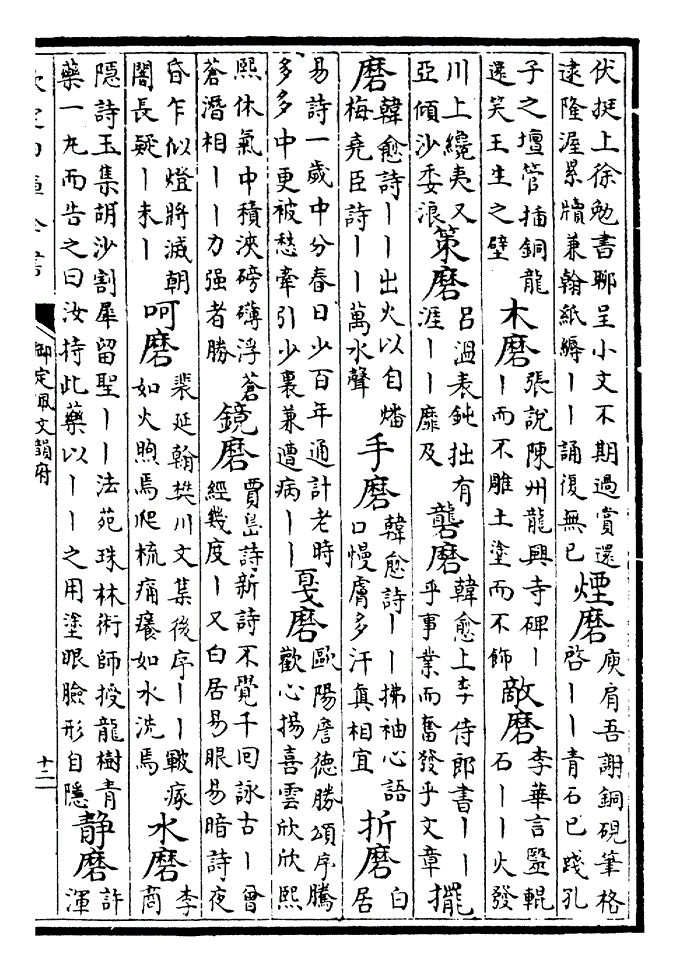 伏挺上徐勉書聊呈小文不期過賞還
逮隆渥累牘兼翰紙縟丨丨誦復無已
煙磨
庾肩吾謝銅硯筆格
啓丨丨青石已踐孔
子之壇管插銅龍
還笑王生之璧
木磨
張說陳州龍興寺碑丨
丨而不雕土塗而不飾
敵磨
李華言毉輥
石丨丨火發
川上纔夷又
亞傾沙委浪
策磨
吕溫表鈍拙有
涯丨丨靡及
礱磨
韓愈上李侍郎書丨丨
乎事業而奮發乎文章
擺
磨
韓愈詩丨丨出火以自燔
梅堯臣詩丨丨萬水聲
手磨
韓愈詩丨丨拂袖心語
口慢膚多汗真相宜
折磨
白
居
易詩一歲中分春日少百年通計老時
多多中更被愁牽引少裏兼遭病丨丨
戛磨
歐陽詹德勝頌序騰
歡心揚喜雲欣欣熙
熙休氣中積泱磅礴浮蒼
蒼潛相丨丨力强者勝
鏡磨
賈島詩新詩不覺千回詠古丨曾
經幾度丨又白居易眼易暗詩夜
昏乍似燈將滅朝
闇長疑丨未丨
呵磨
裴延翰樊川文集後序丨丨皸瘃
如火煦焉爬梳痛癢如水洗焉
水磨
李
商
隱詩玉集胡沙割犀留聖丨丨法苑珠林術師授龍樹青
藥一丸而告之曰汝持此藥以丨丨之用塗眼臉形自隱
静磨
許
渾
欽定四庫全書
御定佩文韻府
十二